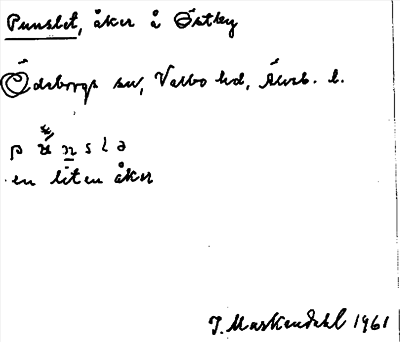 Punslet, åker å Östby
Ödeborgs sn, Valbo hd, Älvsb. l.
en liten åker
J. Maskendahl 1961